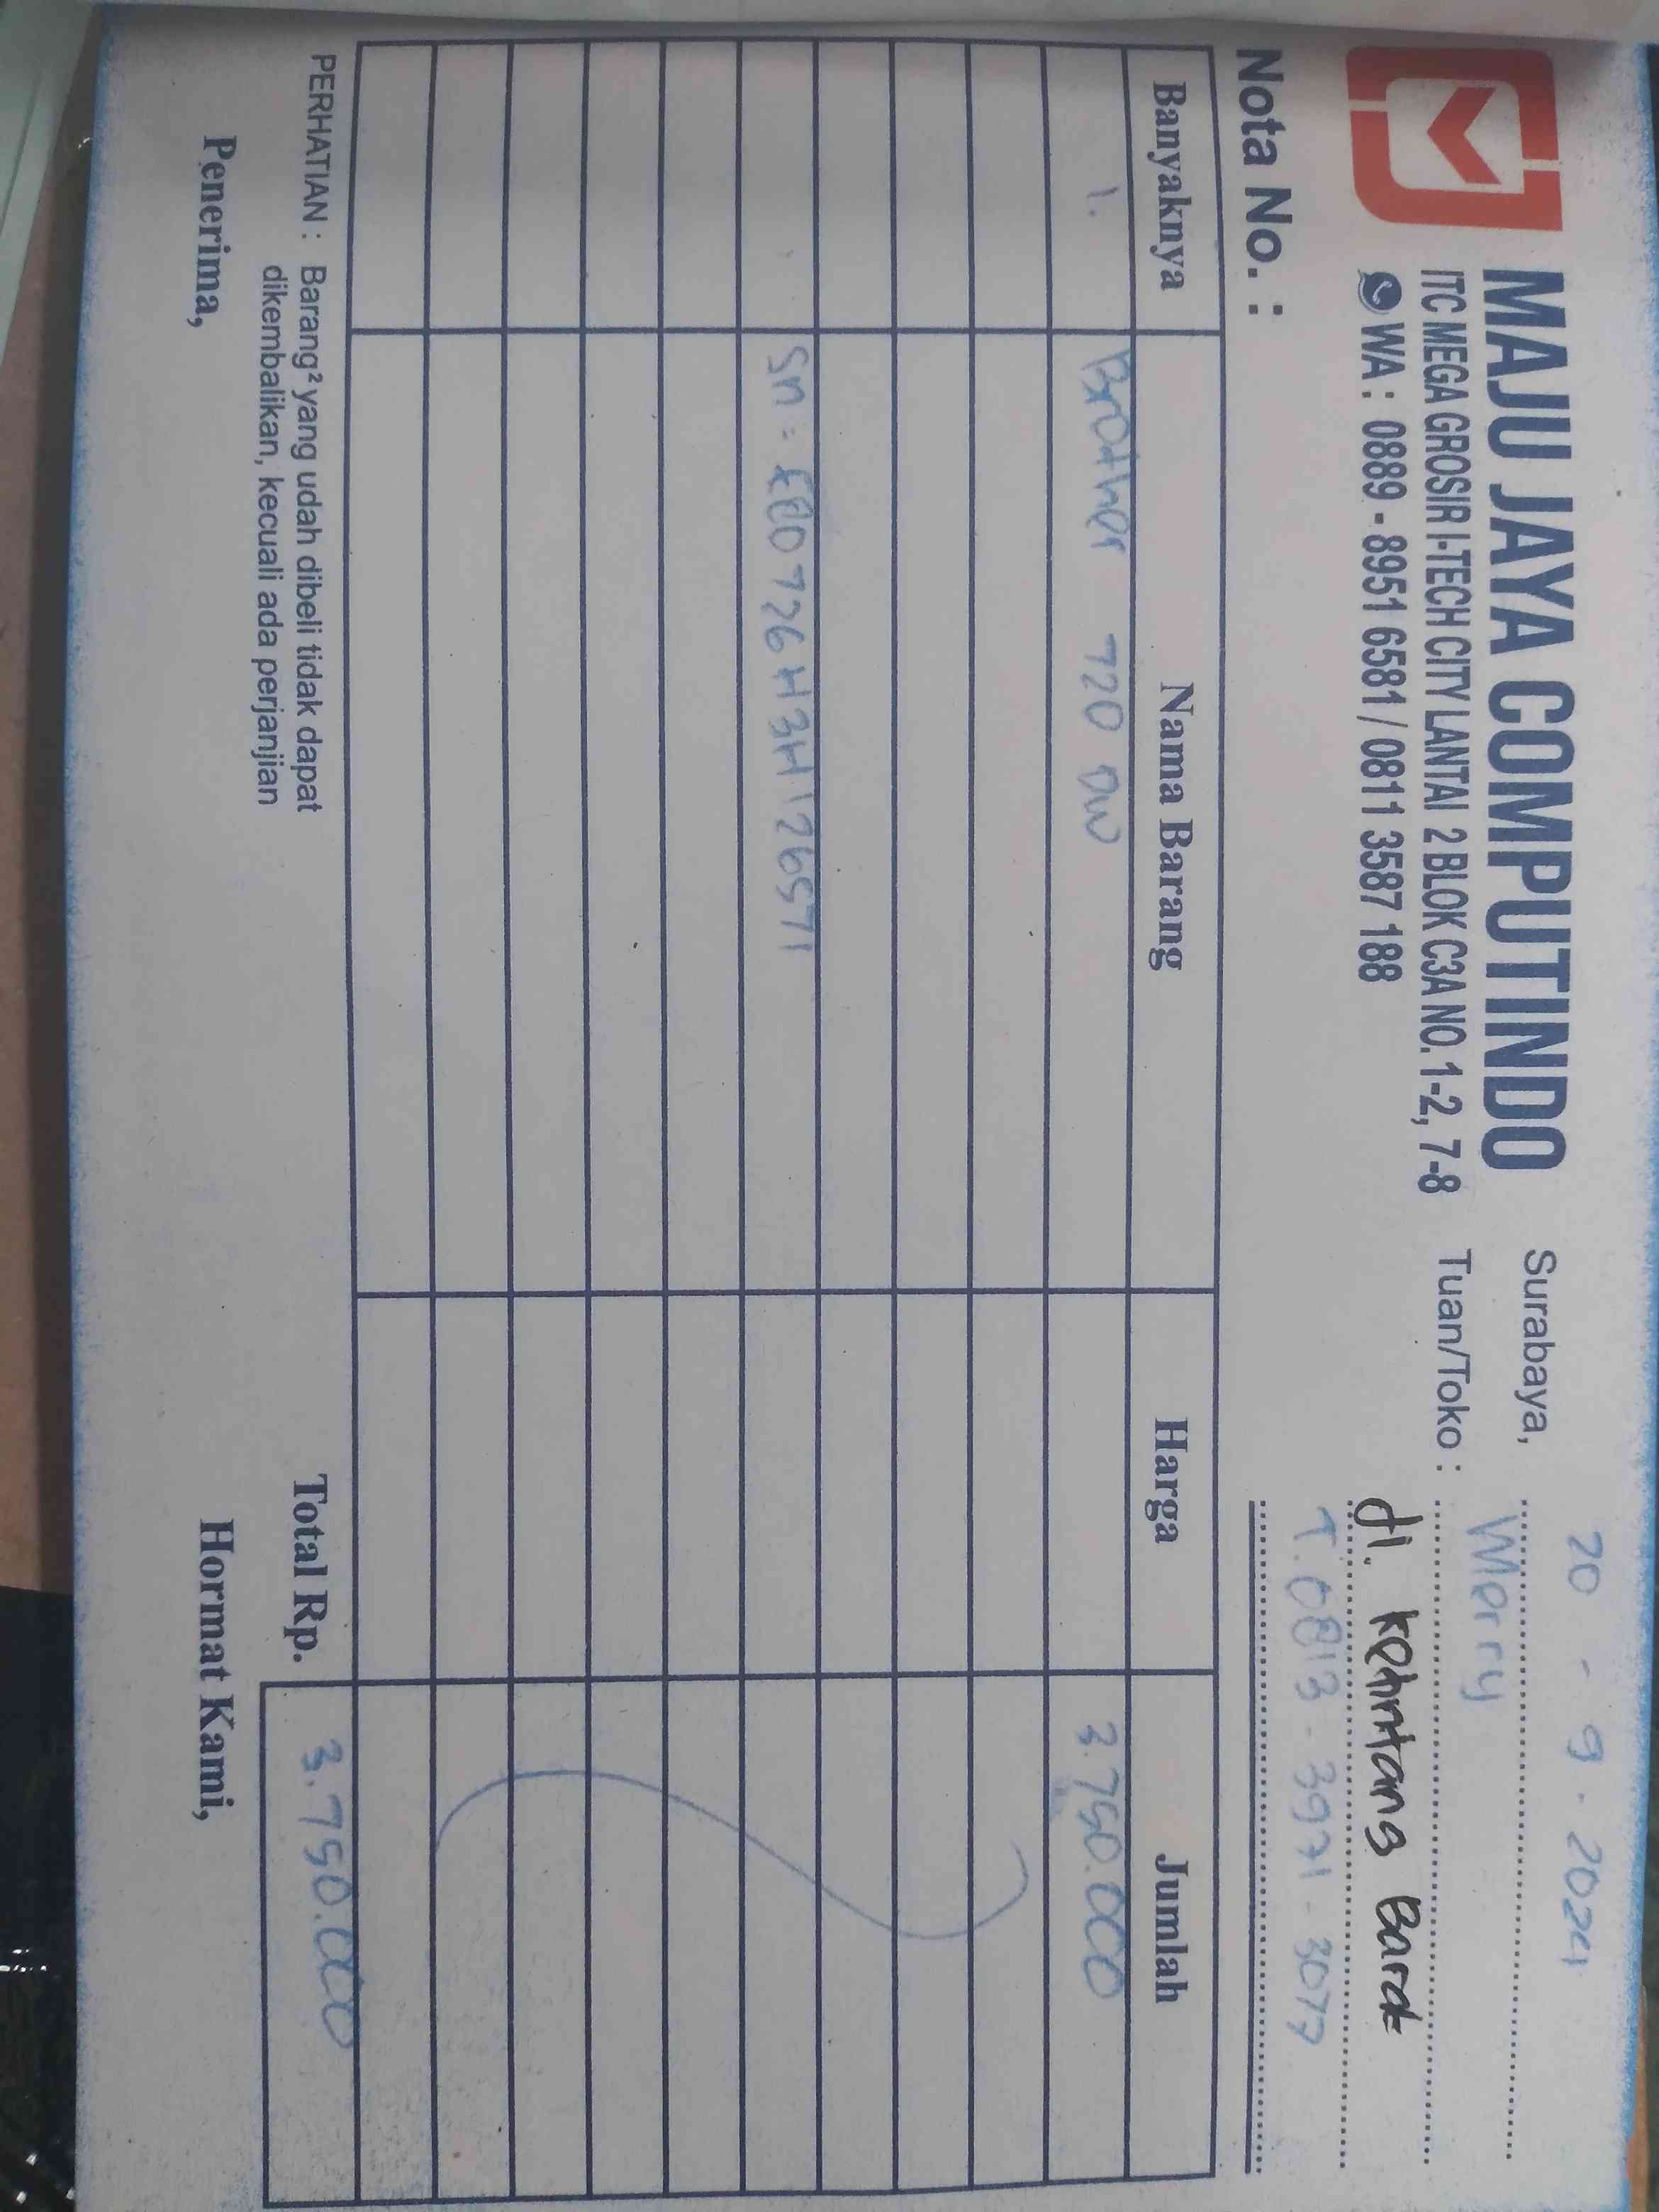 MAJU JAYA COMPUTINDO
ITC MEGA GROSIR I-TECH CITY LANTAI 2 BLOK C3A NO. 1-2, 7-8
WA : 0889 - 8951 6581 / 0811 3587 188
Surabaya, 20 - 9 - 2024
Tuan/Toko : Merry
Jl. Ketintang Barat
T. 0813 - 3971 - 3077
Nota No. :
Banyaknya Nama Barang Harga Jumlah
1. Brother T20 DW 3.750.000
Sn : E80726H3H126571
Total Rp. 3.750.000
PERHATIAN : Barang² yang udah dibeli tidak dapat
dikembalikan, kecuali ada perjanjian
Penerima, Hormat Kami,